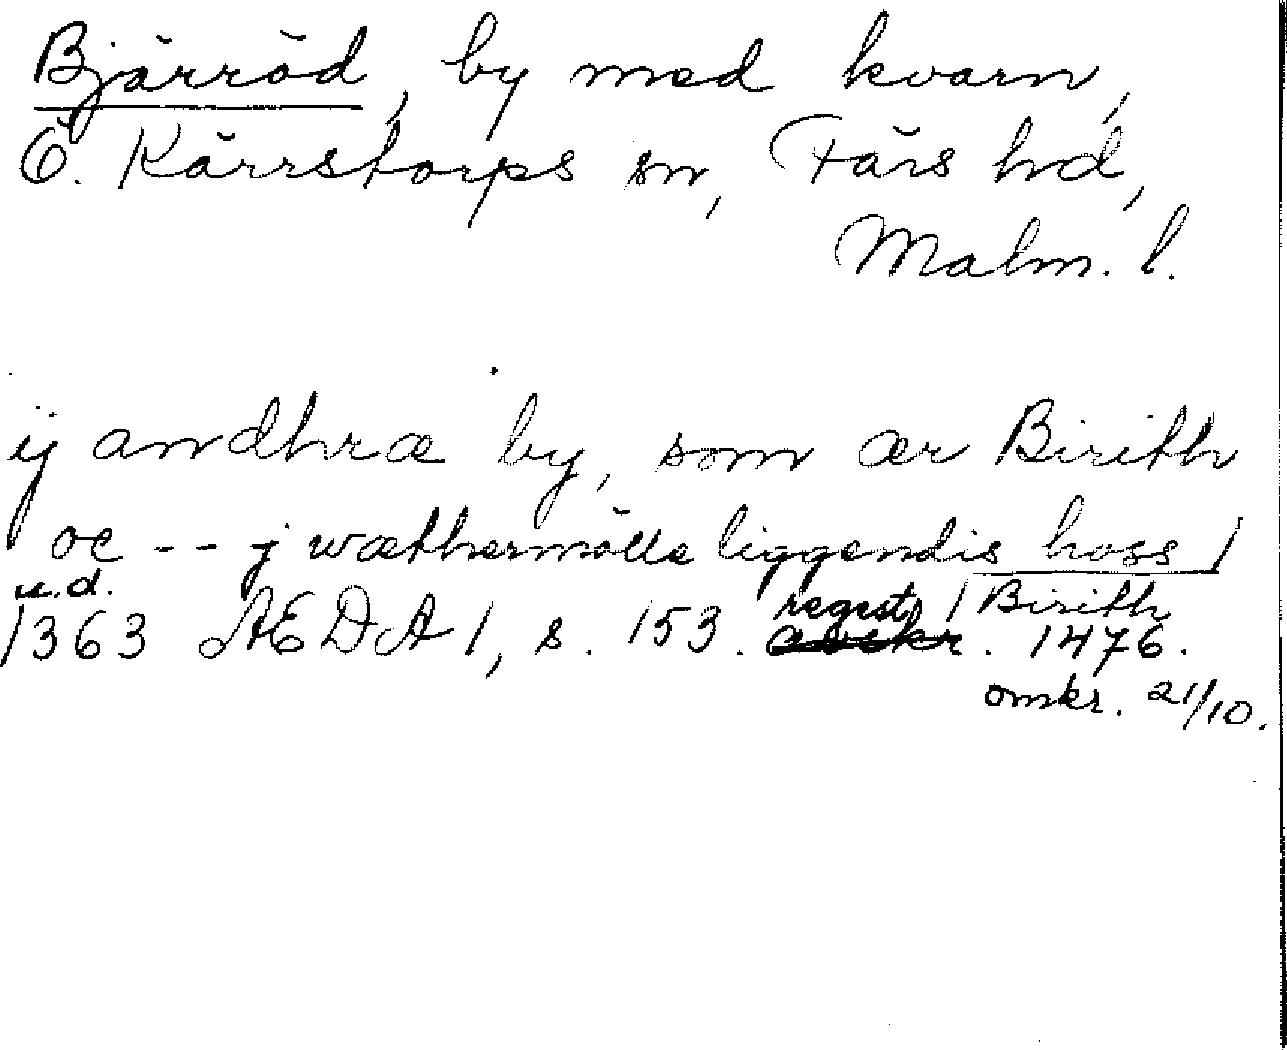 Bjärröd, by med kvarn,
Ö. Kärrstorps sn, Färs hd,
Malm. l.
ij andhræ by, som ær Birith
oc -- j wæthermölle liggendis hoss /
u.d. regest / Birith
1363 ÆDA 1, s. 153. 1476.
omkr. 21/10.